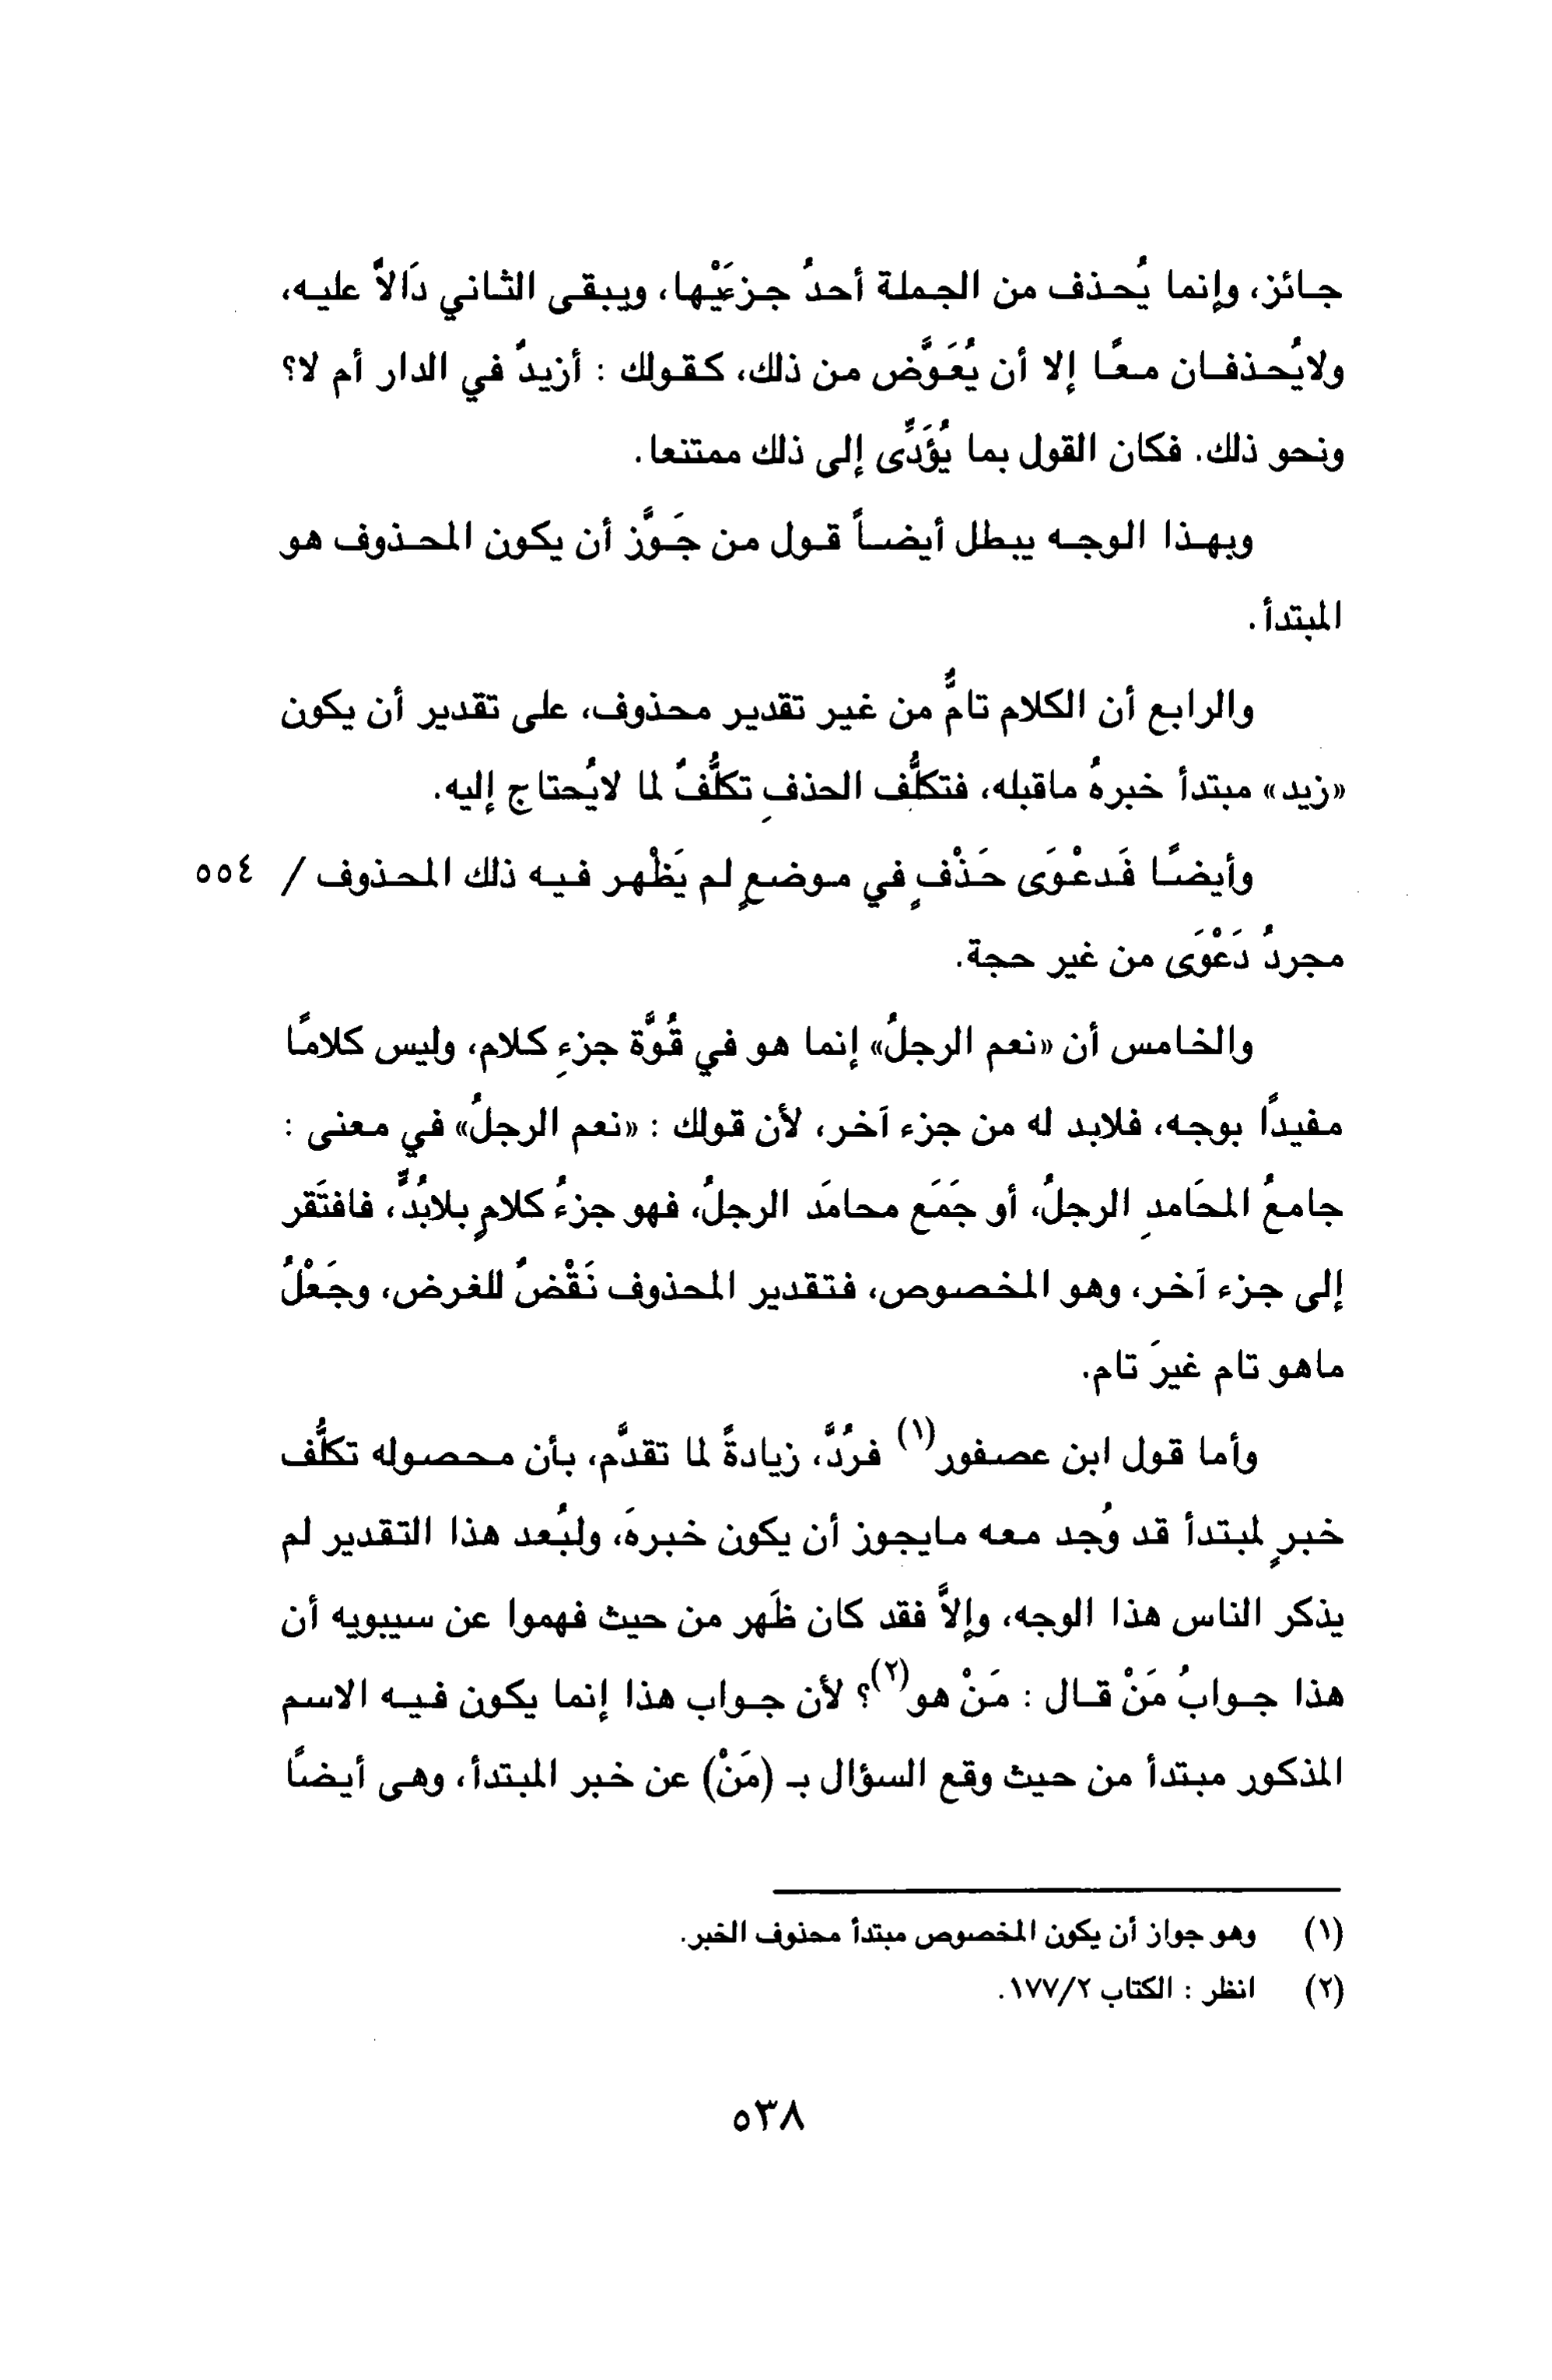 جائز، وإنما يُحذف من الجملة أحدُ جزءَيْها، ويبقى الثاني دَالاًّ عليه،
ولايُحذفان معًا إلا أن يُعَوَّض من ذلك، كقولك : أزيدٌ في الدار أم لا؟
ونحو ذلك. فكان القول بما يُؤَدِّى إلى ذلك ممتنعا.
وبهذا الوجه يبطل أيضاً قول من جَوَّز أن يكون المحذوف هو
المبتدأ.
والرابع أن الكلام تامٌّ من غير تقدير محذوف، على تقدير أن يكون
«زيد» مبتدأ خبرهُ ماقبله، فتكلُّف الحذفِ تكلُّفٌ لما لايُحتاج إليه.
وأيضًا فَدعْوَى حَذْفٍ في موضعٍ لم يَظْهر فيه ذلك المحذوف / ٥٥٤
مجردُ دَعْوَى من غير حجة.
والخامس أن «نعم الرجلُ» إنما هو في قُوَّة جزءِ كلام، وليس كلامًا
مفيدًا بوجه، فلابد له من جزء آخر، لأن قولك : «نعم الرجلُ» في معنى :
جامعُ المحَامدِ الرجلُ، أو جَمَع محامدَ الرجلُ، فهو جزءُ كلامٍ بلابُدٍّ، فافتَقر
إلى جزء آخر، وهو المخصوص، فتقدير المحذوف نَقْضٌ للغرض، وجَعْلُ
ماهو تام غيرَ تام.
وأما قول ابن عصفور(١) فرُدَّ، زيادةً لما تقدَّم، بأن محصوله تكلُّف
خبرٍ لمبتدأ قد وُجد معه مايجوز أن يكون خبرهَ، ولبُعد هذا التقدير لم
يذكر الناس هذا الوجه، وإلاَّ فقد كان ظَهر من حيث فهموا عن سيبويه أن
هذا جوابُ مَنْ قال : مَنْ هو(٢)؟ لأن جواب هذا إنما يكون فيه الاسم
المذكور مبتدأ من حيث وقع السؤال بـ (مَنْ) عن خبر المبتدأ، وهى أيضًا
(١) وهو جواز أن يكون المخصوص مبتدأ محذوف الخبر.
(٢) انظر : الكتاب ١٧٧/٢.
٥٣٨